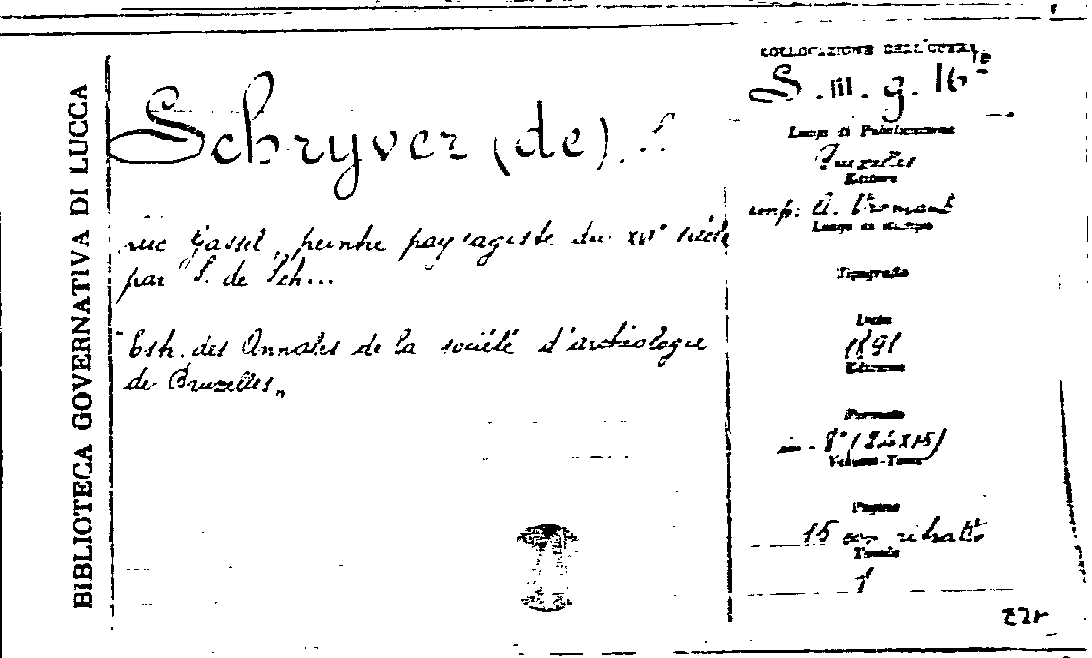 BIBLIOTECA GOVERNATIVA DI LUCCA
Schryver (de). S.
Luc Gassel, peintre paysagiste du XVIe siècle
par S. de Sch...
"Estr. des Annales de la société d'archéologie
de Bruxelles„
COLLOCAZIONE DELL'OPERA
S. III. g. 16
Luogo di Pubblicazione
Bruxelles
Editore
imp: A. Vromant
Luogo di stampa
Tipografia
Data
1891
Edizione
Formato
in-8° (24x15)
Volumi-Tomi
Pagine
15 con ritratto
Tavole
1